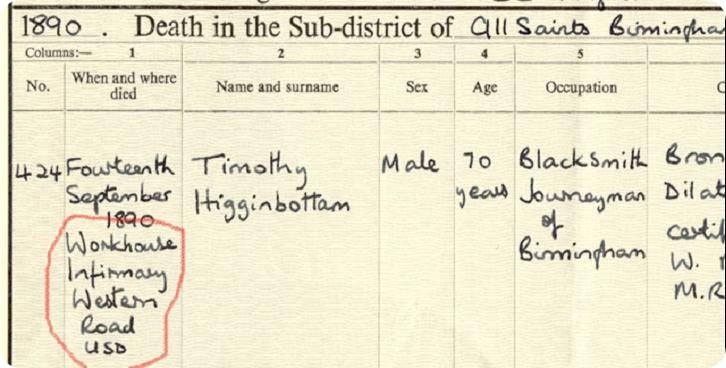 1890 . Death in the Sub-district of All Saints Birmingha
Columns:— 1 2 3 4 5
No. When and where died Name and surname Sex Age Occupation
424 Fourteenth September 1890 Workhouse Infirmary Western Road USD
Timothy Higginbottam
Male
70 years
Blacksmith Journeyman of Birmingham
Bron
Dilat
certif
W.
M.R